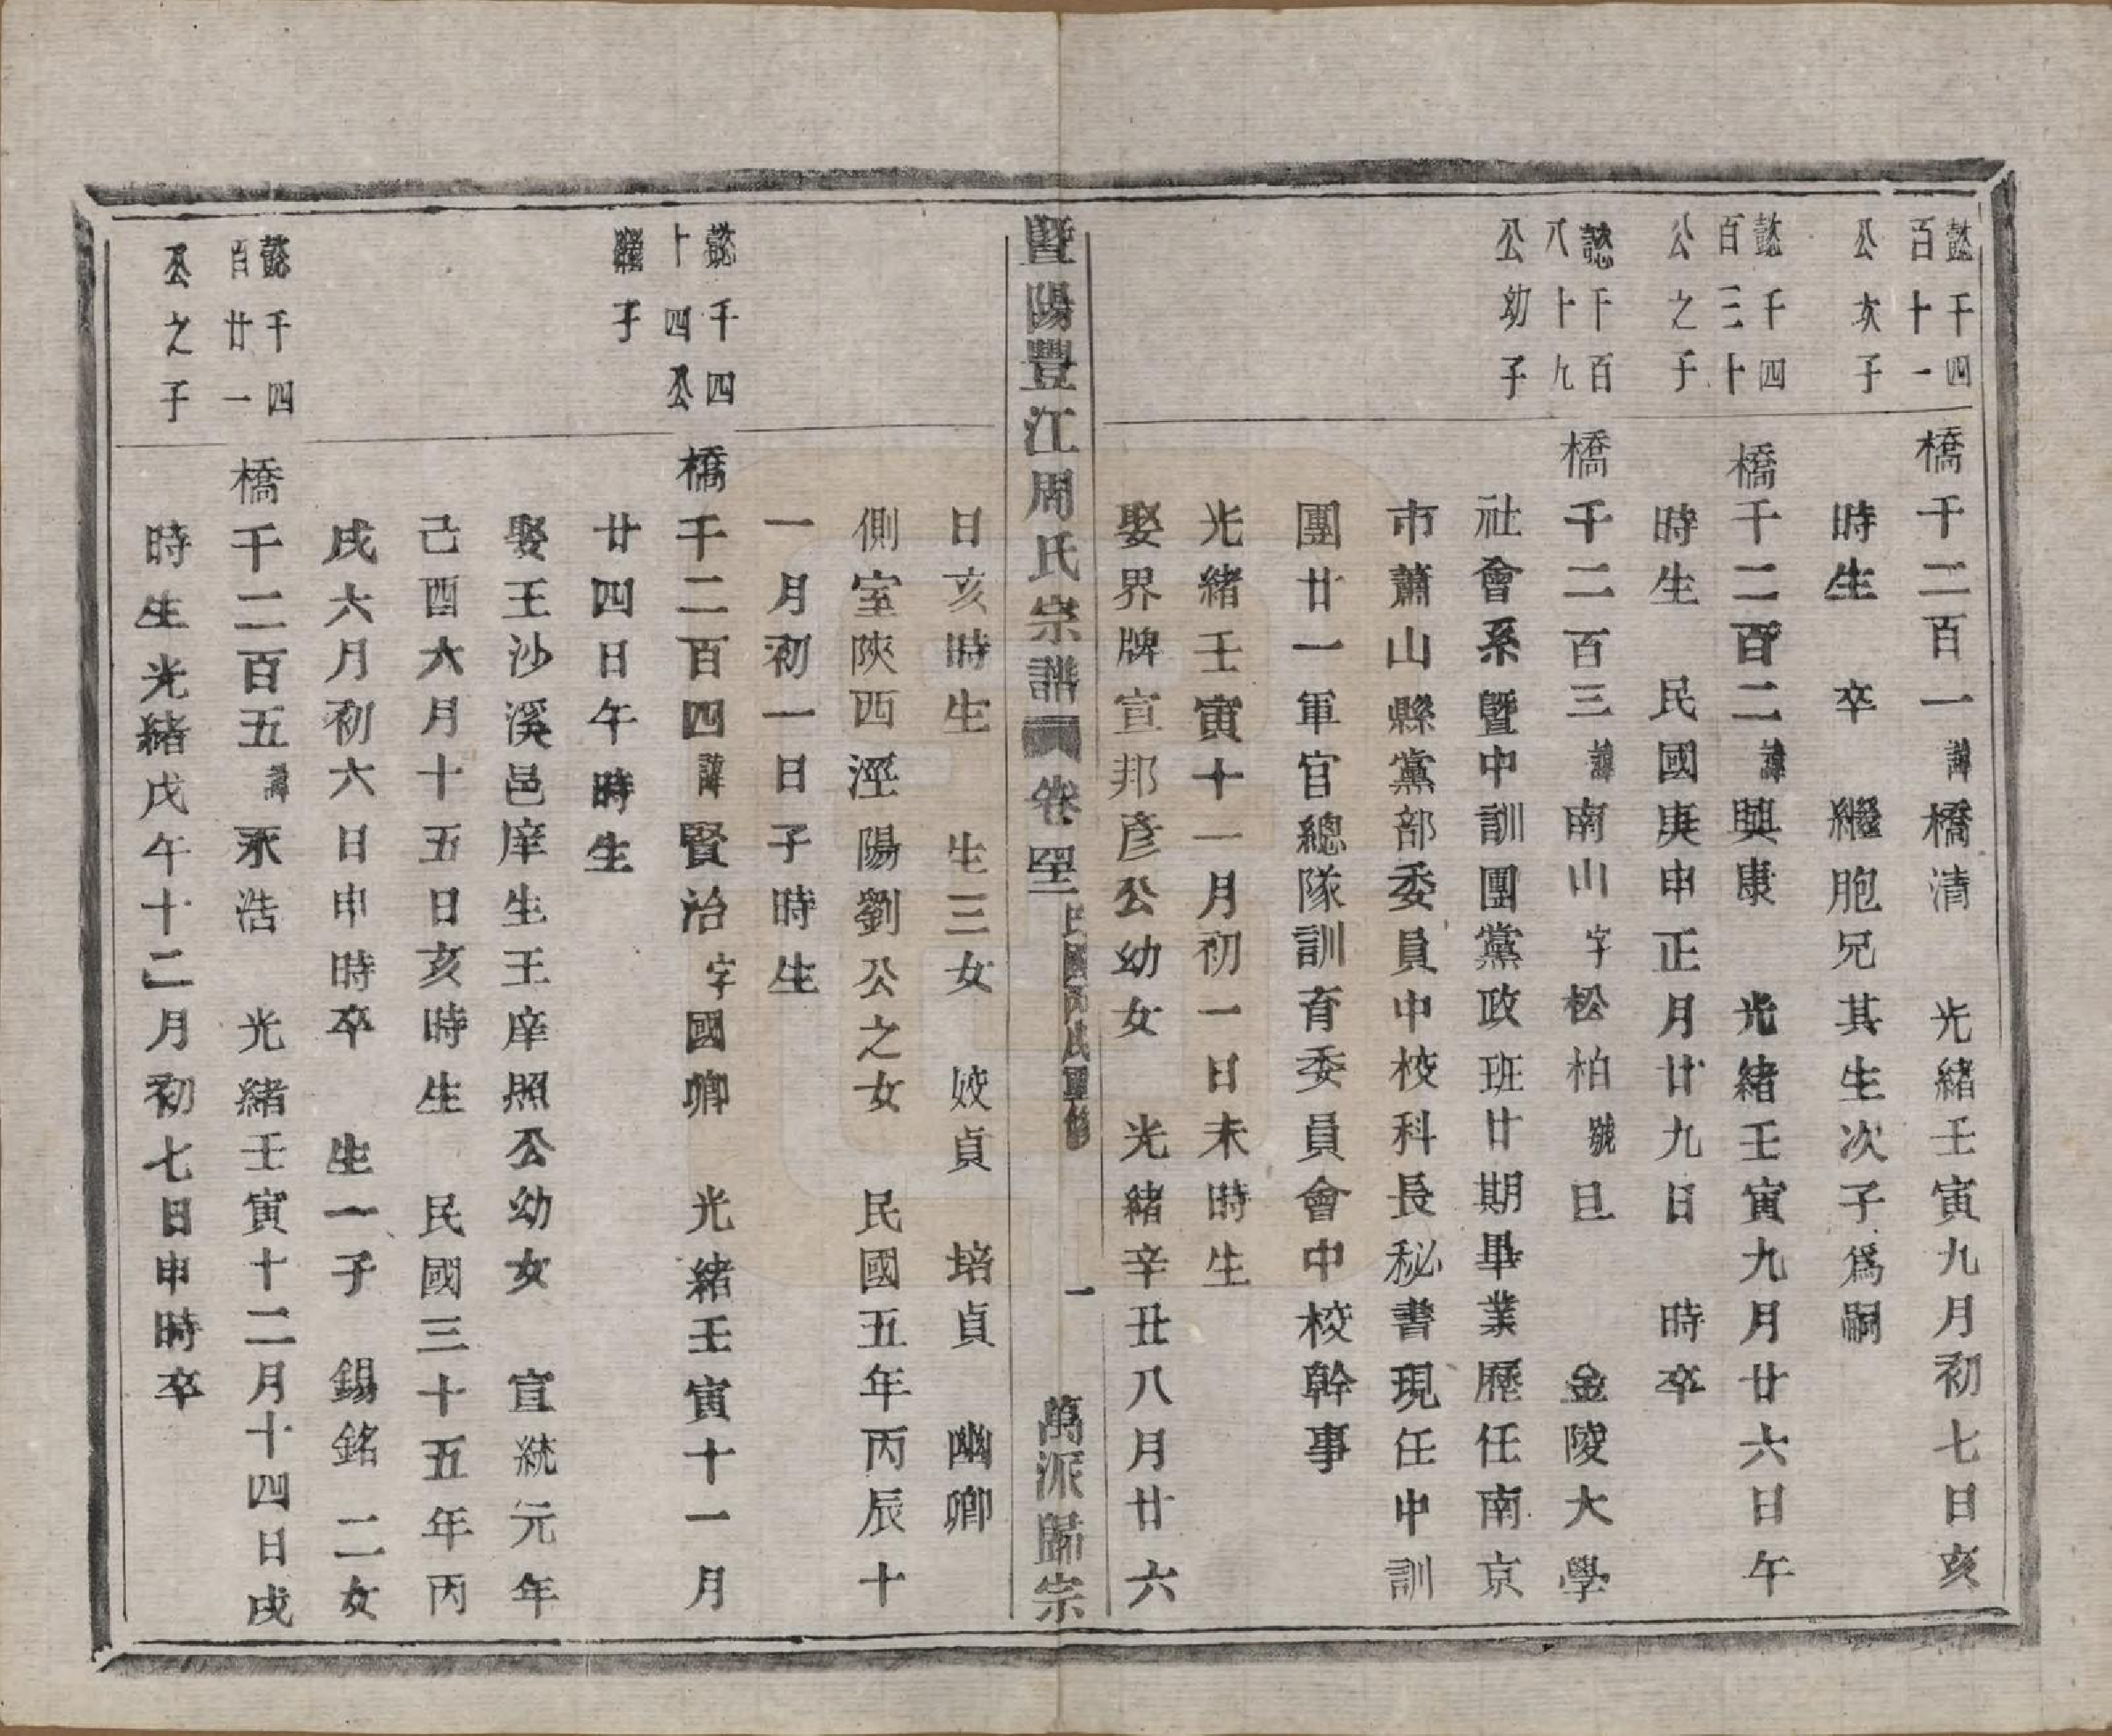 懿千四
百十一
公次子
橋千二百一諱橋清　光緒壬寅九月初七日亥
時生　卒　繼胞兄其生次子爲嗣
懿千四
百三十
公之子
橋千二百二諱興康　光緒壬寅九月廿六日午
時生　民國庚申正月廿九日　時卒
懿千百
八十九
公幼子
橋千二百三諱南山字松柏號旦　金陵大學
社會系暨中訓團黨政班廿期畢業歷任南京
市蕭山縣黨部委員中校科長秘書現任中訓
團廿一軍官總隊訓育委員會中校幹事
光緒壬寅十一月初一日未時生
娶界牌宣邦彥公幼女　光緒辛丑八月廿六
暨陽豐江周氏宗譜　卷　一　萬派歸宗
日亥時生　生三女　姣貞　培貞　幽卿
側室陝西涇陽劉公之女　民國五年丙辰十
一月初一日子時生
懿千四
十四公
繼子
橋千二百四諱賢治字國卿　光緒壬寅十一月
廿四日午時生
娶王沙溪邑庠生王庠照公幼女　宣統元年
己酉六月十五日亥時生　民國三十五年丙
戌六月初六日申時卒　生一子　錫銘　二女
懿千四
百廿一
公之子
橋千二百五諱永浩　光緒壬寅十二月十四日戌
時生光緒戊午十二月初七日申時卒